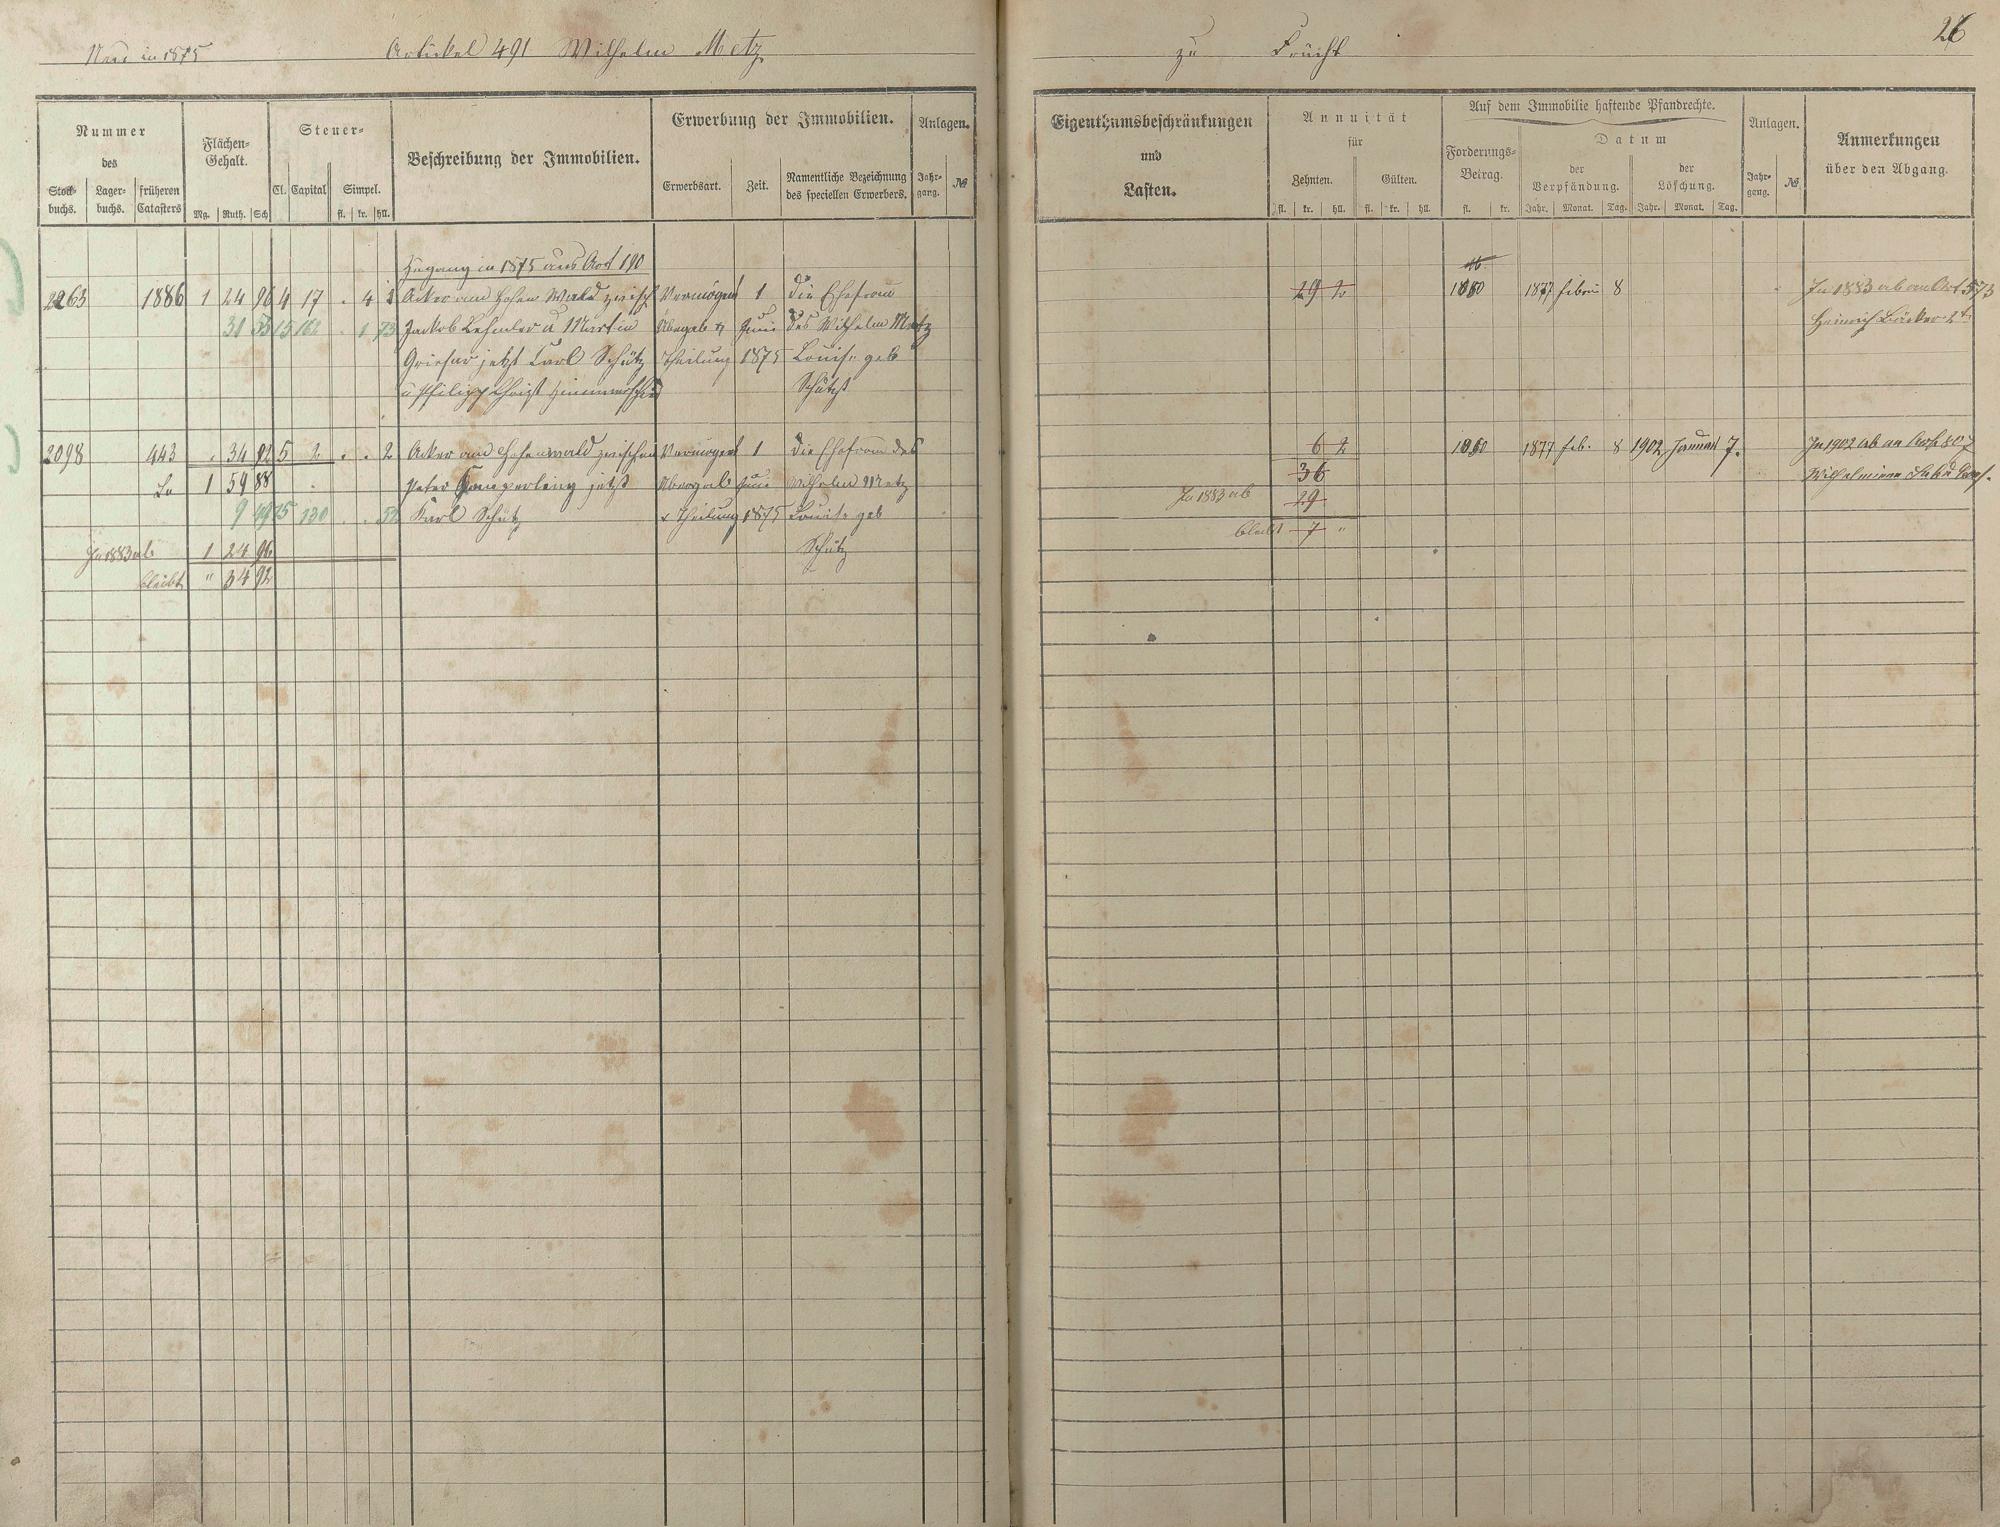 Neu in 1875 Artickel 491 Wilhelm Metz
zu Frücht
26
Nummer
des
Stock-
buchs.
Lager-
buchs.
früheren
Catasters
Flächen-
Gehalt.
Mg. Ruth. Sch
Steuer-
Cl. Capital Simpel.
fl. kr. hll.
Beschreibung der Immobilien.
Erwerbung der Immobilien.
Erwerbsart. Zeit.
Namentliche Bezeichnung
des speciellen Erwerbers.
Anlagen.
Jahr-
gang.
№
Eigenthumsbeschränkungen
und
Lasten.
Annuität
für
Zehnten. Gülten.
fl. kr. hll. fl. kr. hll.
Auf dem Immobilie haftende Pfandrechte.
Forderungs-
Betrag.
fl. kr.
Datum
der
Verpfändung.
der
Löschung.
Jahr. Monat. Tag. Jahr. Monat. Tag.
Anlagen.
Jahr-
gang.
№
Anmerkungen
über den Abgang.
Zugang in 1875 aus Art 190
2263 1886 1 24 96 4 17 . 4 2 Acker am hohen Wald zwisch Vermögens 1 die Ehefrau
31 53 15 162 . 1 73 Jackob Lehmler u Martin Übergab & Juni des Wilhelm Metz
jetzt Carl Schütz Theilung 1875 Louise geb
u Philipp Christ
29 2 1877 8 In 1883 ab an Art 573
Heinrich Bäcker 2t.
2098 443 . 34 92 5 2 . . 2 Acker am hohenwald zwischen Vermögens 1 die Ehefrau des
1 59 88 Peter jetzt Übergab Juni Wilhelm Metz
130 Karl Schütz & Theilung 1875 Louise geb
Schütz
In 1883 ab 1 24 96
bleibt " 34 92
6 2 1877 Feb. 8 1902 Januar 7. In 1902 ab an
36 Wilhelmine
In 1883 ab 29
bleibt 7 "